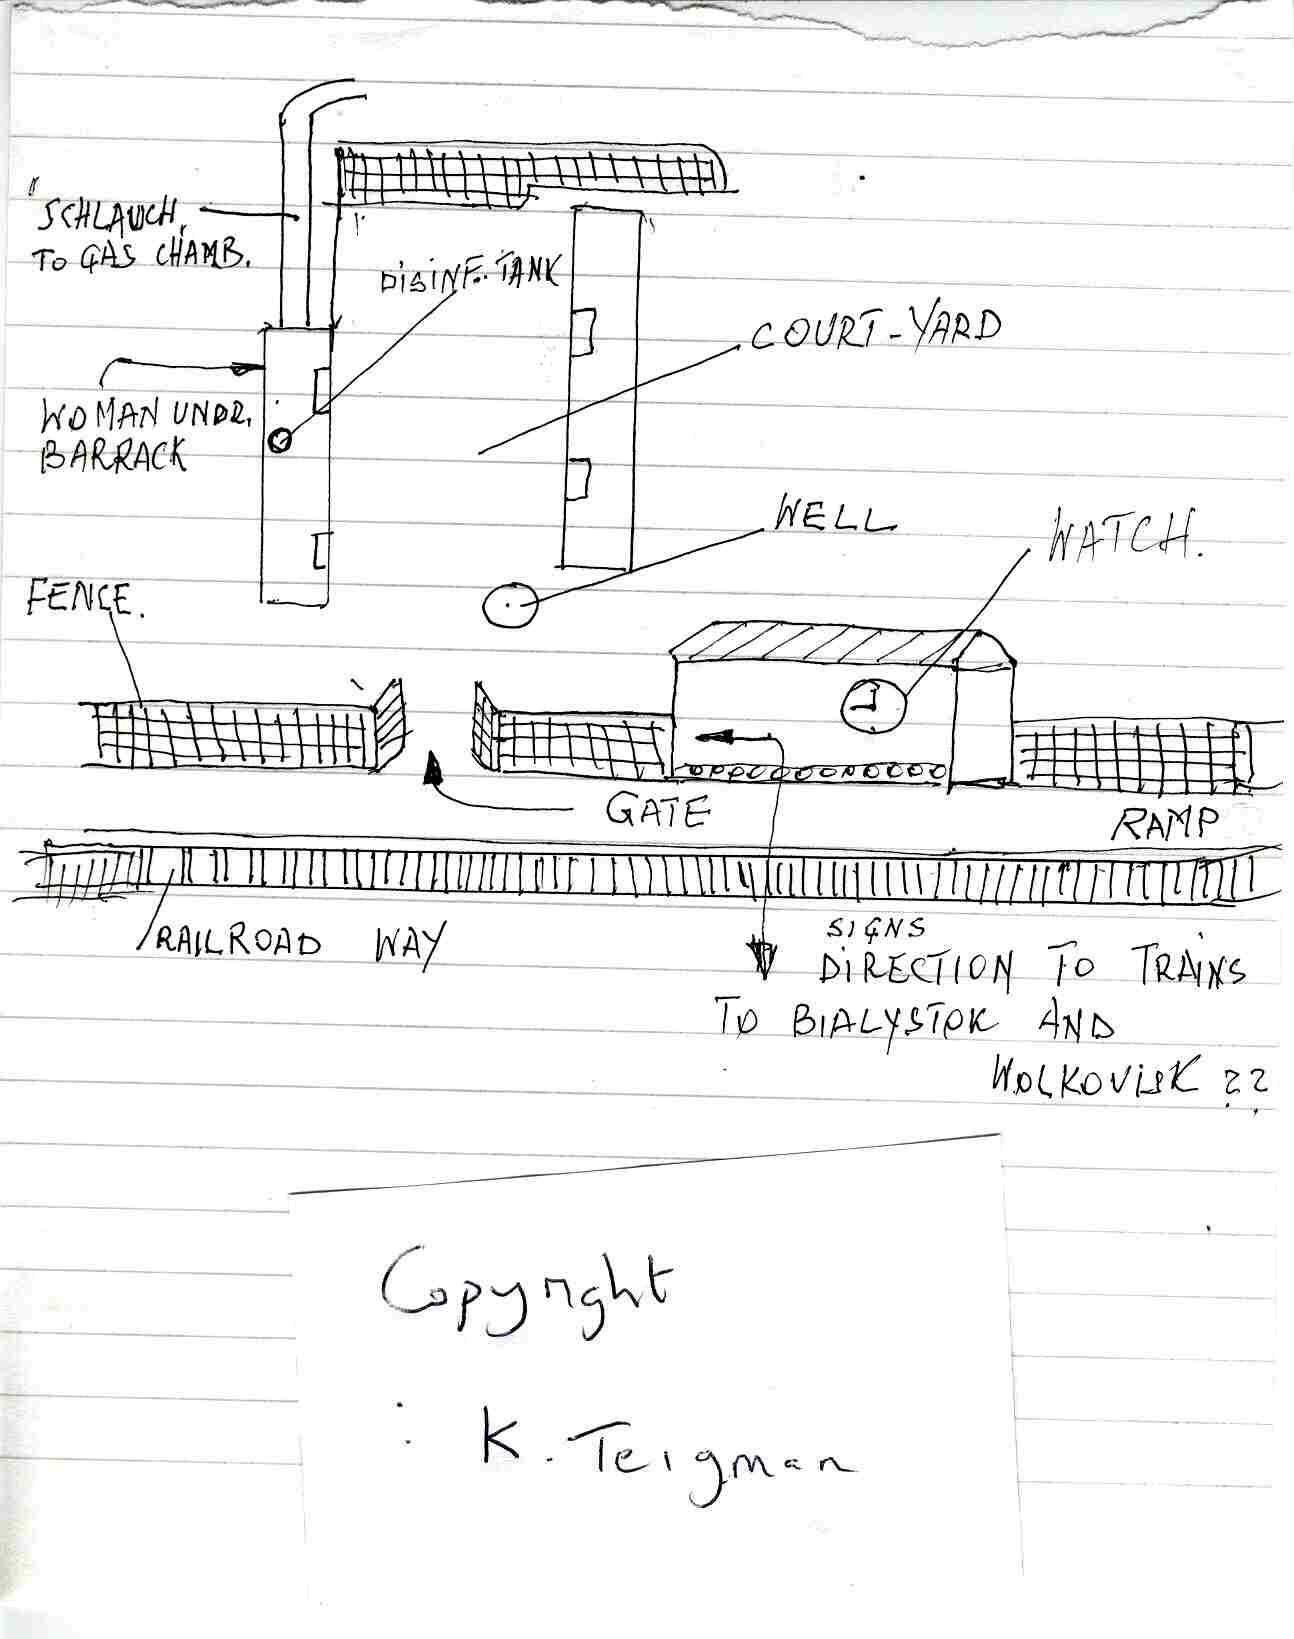 "SCHLAUCH,
TO GAS CHAMB.
DISINF. TANK
COURT-YARD
WOMAN UNDR.
BARRACK
WELL
WATCH.
FENCE.
GATE
RAMP
RAILROAD WAY
SIGNS
DIRECTION TO TRAINS
TO BIALYSTOK AND
WOLKOVISK ??
Copyright
: K. Teigman